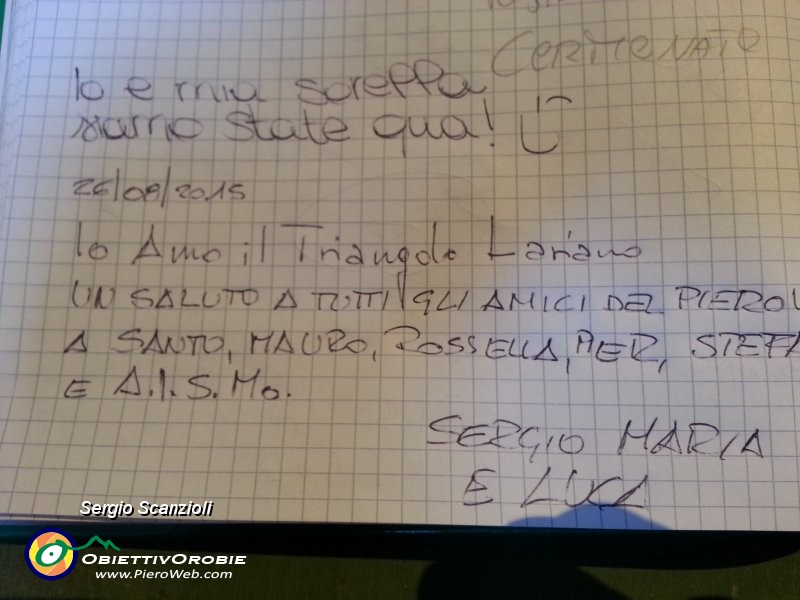 CERMENATO
Io e mia sorella
siamo state qua!
26/08/2015
Io Amo il Triangolo Lariano
UN SALUTO A TUTTI GLI AMICI DEL PIEROW
A SANTO, MAURO, ROSSELLA, PIER, STEFA
E A.I.S.Mo.
SERGIO MARIA
E LUCA
Sergio Scanzioli
OBIETTIVOROBIE
www.PieroWeb.com